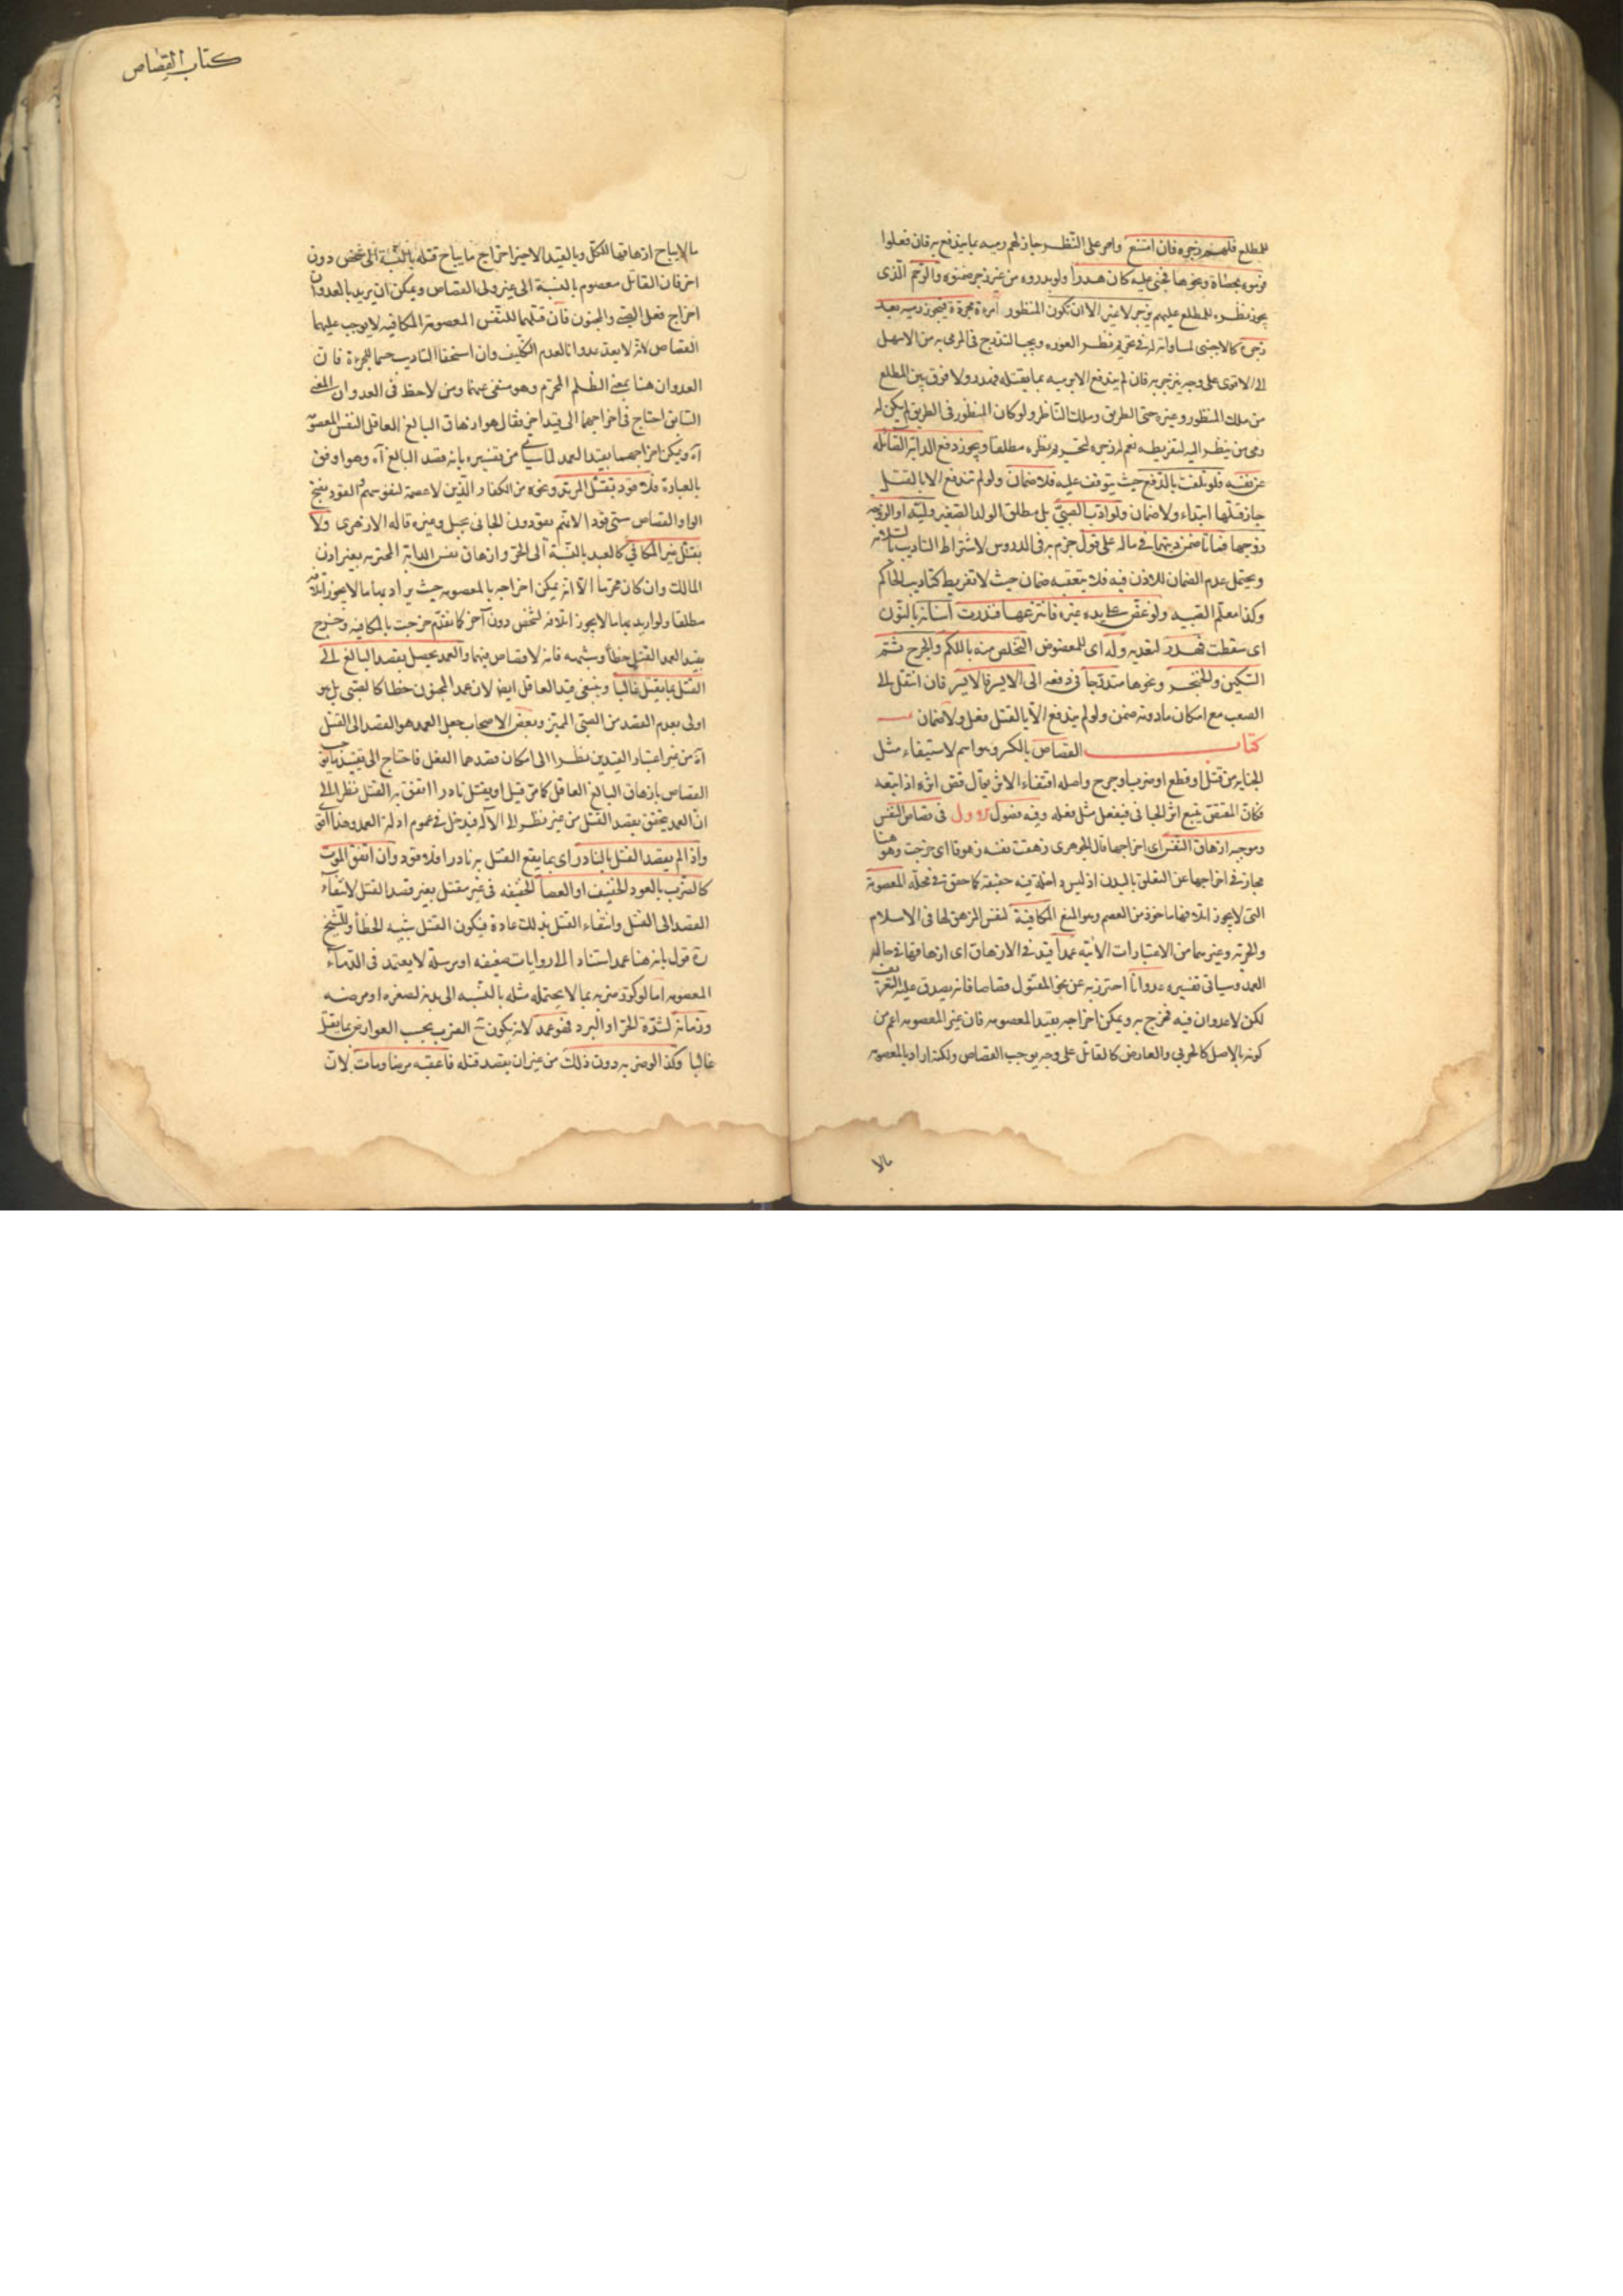 للمطلع فلهم زجره فان امتنع واصر على النظر جاز لهم رميه بما يندفع به فان فعلوا
فرموه بحصاة ونحوها فجنى عليه كان هدرا ولو بدروه من غير زجر ضمنوه والرحم الذى
يجوز نظره للمطلع عليهم يزجر لا غير الا ان تكون المنظور امرءة مجردة فيجوز رميه بعد
زجره كالاجنبى لمساواته له فى تحريم نظر العورة ويجب التدرج فى المرمى به من الاسهل
الى الاقوى على وجه ينزجر به فان لم يندفع الا برميه بما يقتله فهدر ولا فرق بين المطلع
من ملك المنظور وغيره حتى الطريق وملك الناظر ولو كان المنظور فى الطريق لم يكن له
رمى من ينظر اليه لتفريطه نعم له زجره لتحريم نظره مطلقا ويجوز دفع الدابة الصائلة
عن نفسه فلو تلفت بالدفع حيث يتوقف عليه فلا ضمان ولو لم تندفع الا بالقتل
جاز قتلها ابتداء ولا ضمان ولو ادب الصبى بل مطلق الولد الصغير وليه او الزوجة
زوجها فماتا ضمن ديتهما فى ماله على قول جزم به فى الدروس لاشتراط التاديب بالسلامة
ويحتمل عدم الضمان للاذن فيه فلا يتعقبه ضمان حيث لا تفريط كتاديب الحاكم
وكذا معلم الصبية ولو عض على يد غيره فانتزعها فندرت اسنانه بالنون
اى سقطت فهدر لتعديه وله اى للمعضوض التخلص منه باللكم والجرح ثم
السكين والخنجر ونحوها متدرجا فى دفعه الى الايسر فالايسر فان انتقل الى
الصعب مع امكان ما دونه ضمن ولو لم يندفع الا بالقتل فعل ولا ضمان
كتاب القصاص بالكسر وهو اسم لاستيفاء مثل
الجناية من قتل او قطع او ضرب او جرح واصله اقتفاء الاثر يقال قص اثره اذا تبعه
فكان المقتص يتبع اثر الجانى فيفعل مثل فعله وفيه فصول الاول فى قصاص النفس
وموجبه ازهاق النفس اى اخراجها قال الجوهرى زهقت نفسه زهوقا اى خرجت وهو هنا
مجاز فى اخراجها عن التعلق بالبدن اذ ليس داخلة فيه حقيقة كما حقق فى محله المعصومة
التى لا يجوز اتلافها ماخوذ من العصم وهو المنع المكافئة لنفس المزهق لها فى الاسلام
والحرية وغيرهما من الاعتبارات الاتية عمدا قيد فى الازهاق اى ازهاقها فى حالة
العمد وسياتى تفسيره عدوانا احترز به عن نحو المقتول قصاصا فانه يصدق عليه التعريف
لكن لا عدوان فيه فخرج به ويمكن اخراجه بقيد المعصومة فان غير المعصومة اعم من
كونه بالاصل كالحربى والعارض كالقاتل على وجه يوجب القصاص ولكنه اراد بالمعصومة
مالا
كتاب القصاص
ما لا يباح ازهاقها للكل وبالقيد الاخير اخراج ما يباح قتله بالنسبة الى شخص دون
اخر فان القاتل معصوم بالنسبة الى غير ولى القصاص ويمكن ان يريد بالعدوان
اخراج فعل الصبى والمجنون فان قتلهما للنفس المعصومة المكافية لا يوجب عليهما
القصاص لانه لا يعد عدوانا لعدم التكليف وان استحقا التاديب حسما للجرءة فان
العدوان هنا بمعنى الظلم المحرم وهو منفى عنهما ومن لاحظ فى العدوان المعنى
السابق احتاج فى اخراجهما الى قيد اخر فقال هو ازهاق البالغ العاقل النفس المعصومة
اه ويمكن اخراجهما بقيد العمد لما سياتى من تفسيره بانه قصد البالغ اه وهو اوفق
بالعبارة فلا قود بقتل المرتد ونحوه من الكفار الذين لا عصمة لنفوسهم والقود بفتح
الواو القصاص سمى قودا لانهم يقودون الجانى بحبل وغيره قاله الازهرى ولا
بقتل غير المكافى كالعبد بالنسبة الى الحر وازهاق نفس الدابة المحترمة بغير اذن
المالك وان كان محرما الا انه يمكن اخراجه بالمعصومة حيث يراد بها ما لا يجوز اتلافه
مطلقا ولو اريد بها ما لا يجوز اتلافه لشخص دون آخر كما تقدم خرجت بالمكافية وخرج
بقيد العمد القتل خطأ وشبهه فانه لا قصاص فيهما والعمد يحصل بقصد البالغ الى
القتل بما يقتل غالبا وينبغى قيد العاقل ايضا لان عمد المجنون خطا كالصبى بل هو
اولى بعدم القصد من الصبى المميز وبعض الاصحاب جعل العمد هو القصد الى القتل
اه من غير اعتبار القيدين نظرا الى امكان قصدهما الفعل فاحتاج الى تقييد ما يوجب
القصاص بازهاق البالغ العاقل كما مر قيل او يقتل نادرا اذا اتفق به القتل نظرا الى
ان العمد يتحقق بقصد القتل من غير نظر الى الآلة فيدخل فى عموم ادلة العمد وهذا اقوى
واذا لم يقصد القتل بالنادر اى بما يقع القتل به نادرا فلا قود وان اتفق الموت
كالضرب بالعود الخفيف او العصا الخفيفة فى غير مقتل بغير قصد القتل لانتفاء
القصد الى القتل وانتفاء القتل بذلك عادة فيكون القتل شبيه الخطأ وللشيخ
ره قول بانه هنا عمد استنادا الى روايات ضعيفة او مرسلة لا يعتمد فى الدماء
المعصومة اما لو كرر ضربه بما لا يحتمله مثله بالنسبة الى بدنه لصغره او مرضه
وزمانه لشدة الحر او البرد فهو عمد لانه يكون ح الضرب بحسب العوارض مما يقتل
غالبا وكذا لو ضربه دون ذلك من غير ان يقصد قتله فاعقبه مرضا ومات لان